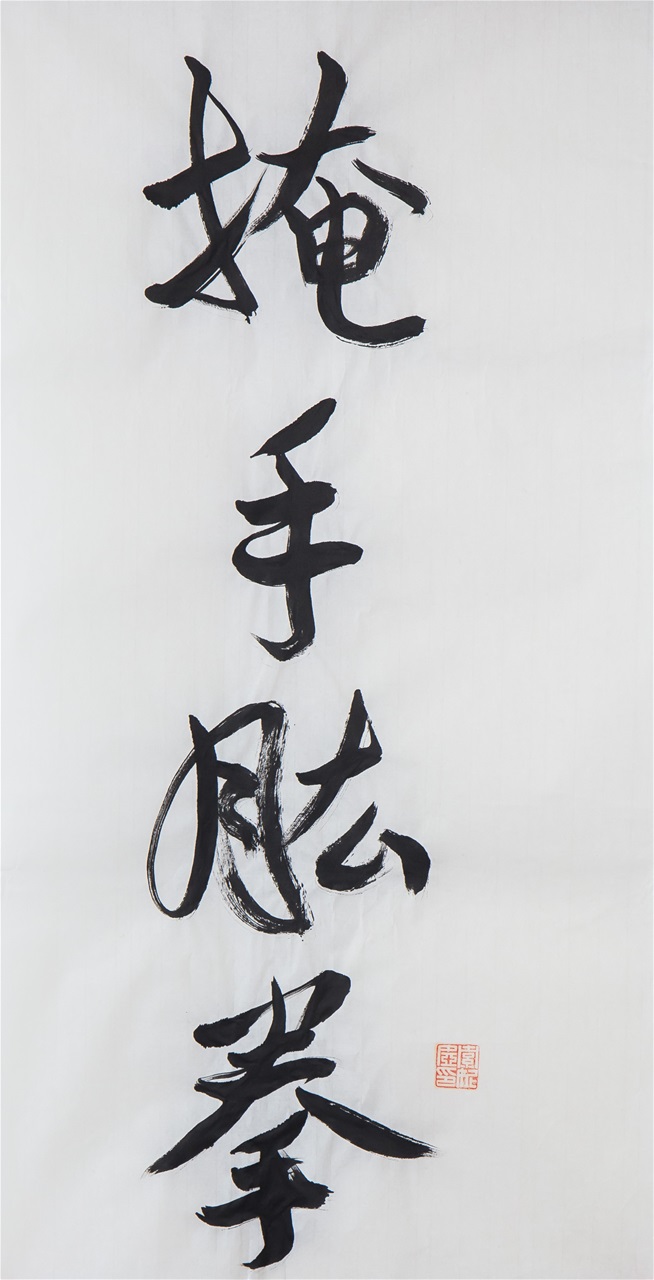 掩手肱拳